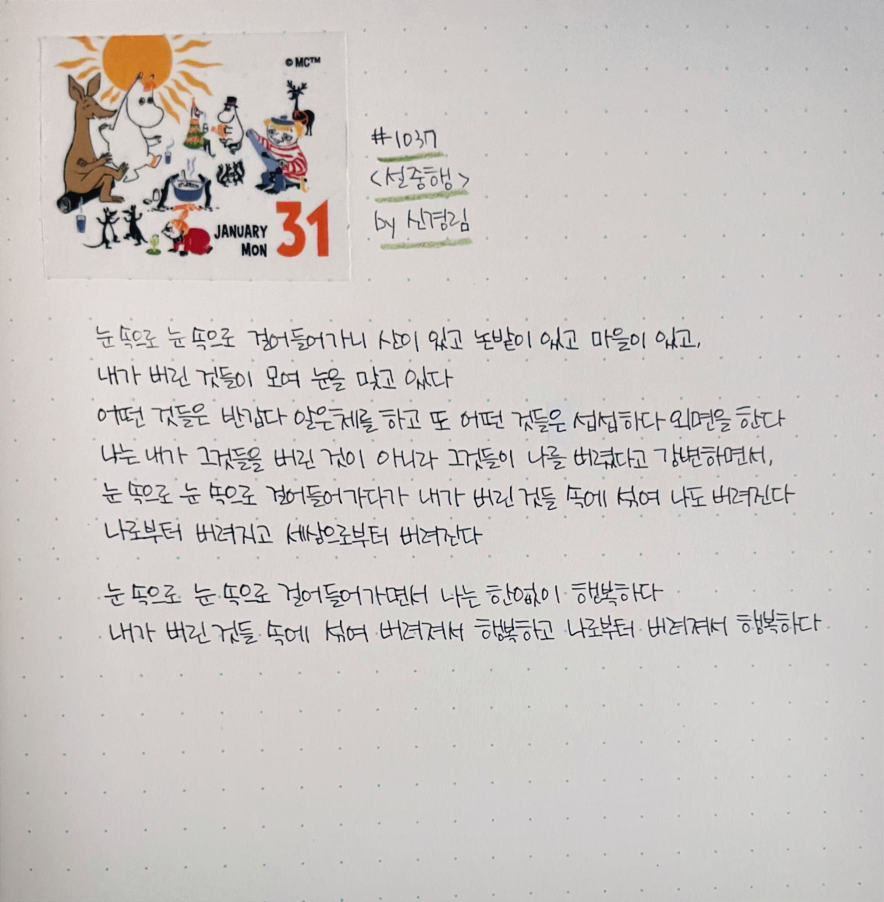 ©MC™
JANUARY
MON
31
#1037
<설중행>
by 신경림
눈 속으로 눈 속으로 걸어들어가니 산이 있고 논밭이 있고 마을이 있고,
내가 버린 것들이 모여 눈을 맞고 있다
어떤 것들은 반갑다 알은체를 하고 또 어떤 것들은 섭섭하다 외면을 한다
나는 내가 그것들을 버린 것이 아니라 그것들이 나를 버렸다고 강변하면서,
눈 속으로 눈 속으로 걸어들어가다가 내가 버린 것들 속에 섞여 나도 버려진다
나로부터 버려지고 세상으로부터 버려진다
눈 속으로 눈 속으로 걸어들어가면서 나는 한없이 행복하다
내가 버린 것들 속에 섞여 버려져서 행복하고 나로부터 버려져서 행복하다